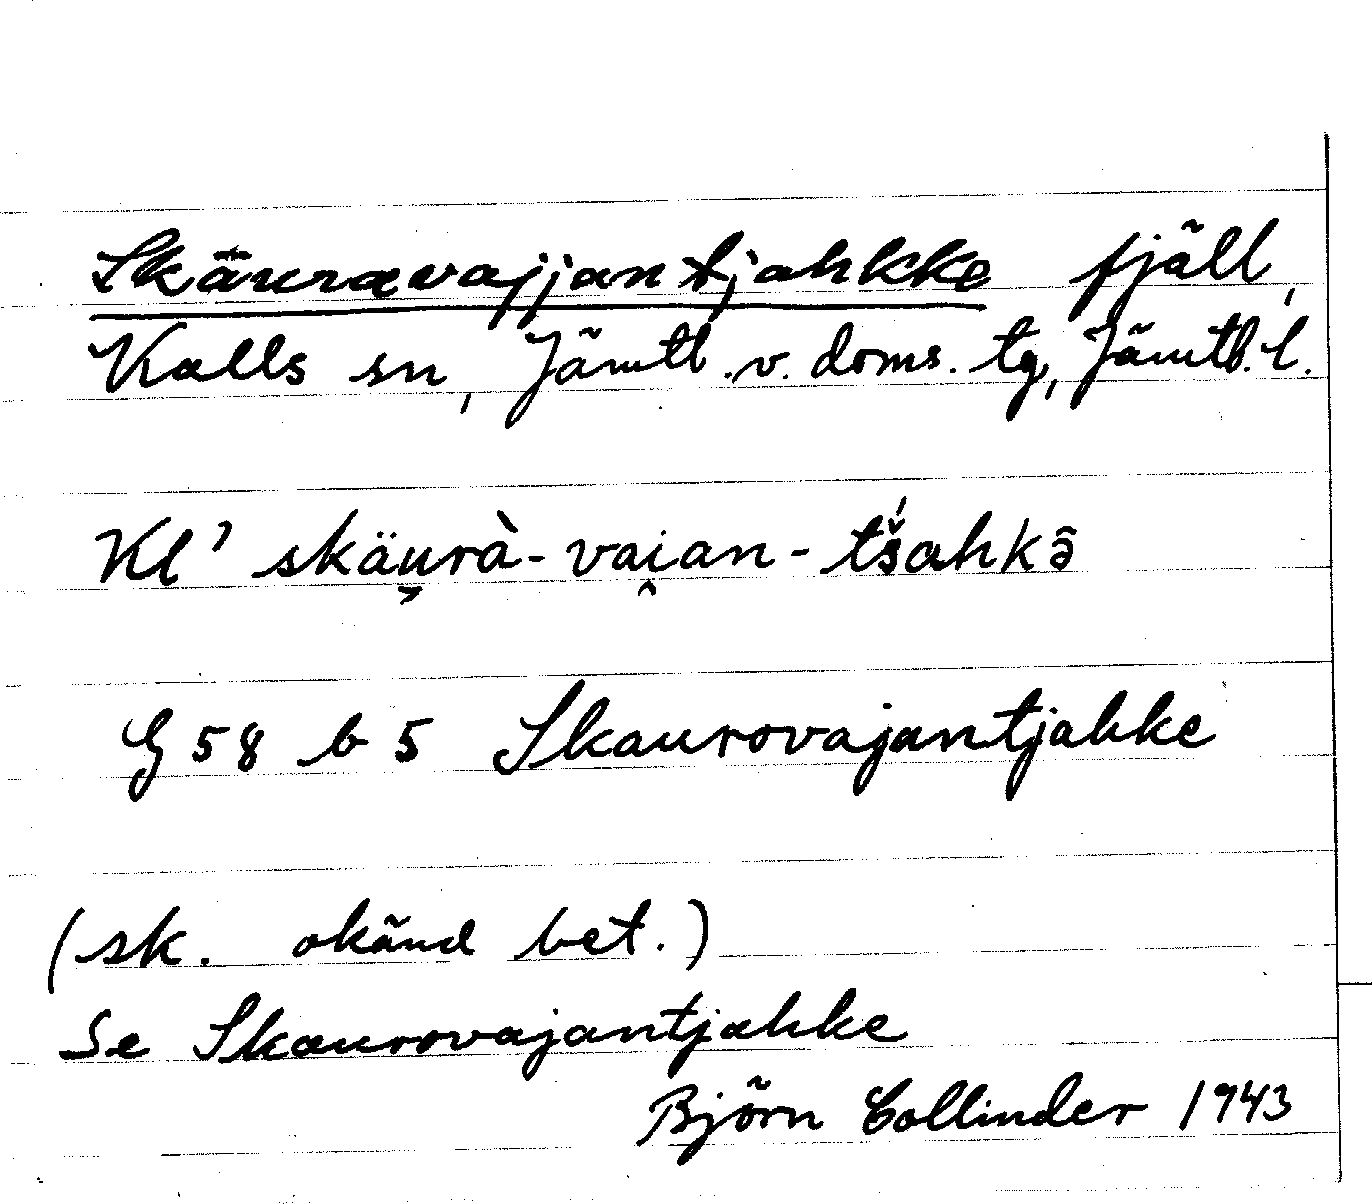 Skäuravajjantjahkke fjäll,
Kalls sn, Jämtl. v. doms. tg, Jämtl. l.
Kl' skäu̬rà-vai̭an-tš́ahkə̄
G 58 b 5 Skaurovajantjahke
(sk. okänd bet.)
Se Skaurovajantjahke
Björn Collinder 1943